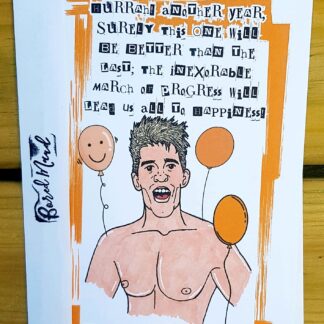 HURRAH! ANOTHER YEAR,
SURELY THIS ONE WILL
BE BETTER THAN THE
LAST; THE INEXORABLE
MARCH OF PROGRESS WILL
LEAD US ALL TO HAPPINESS!